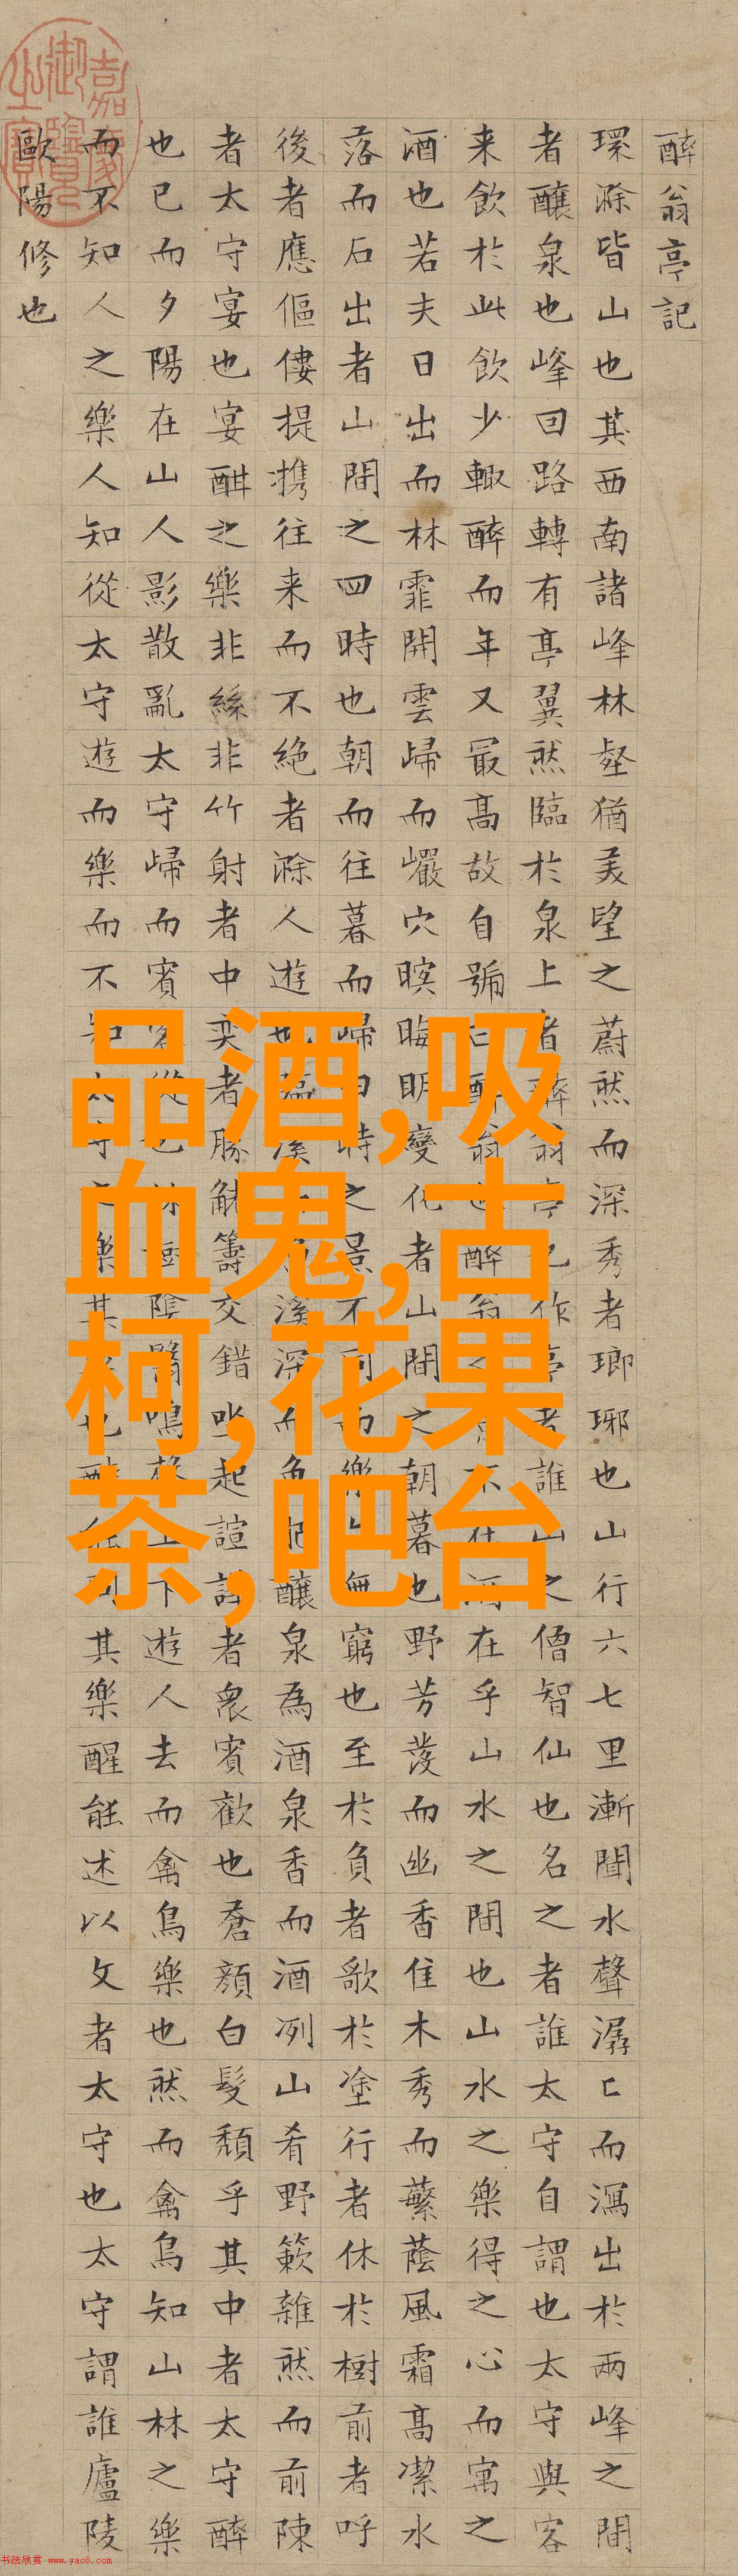 醉翁亭記
環滁皆山也其西南諸峰林壑猶美望之蔚然而深秀者瑯琊也山行六七里漸聞水聲潺匕而瀉出於兩峰之間
者釀泉也峰回路轉有亭翼然臨於泉上者醉翁亭也作亭者誰山之僧智仙也名之者誰太守自謂也太守與客
来飲於此飲少輒醉而年又最高故自號曰醉翁也醉翁之不在酒在乎山水之間也山水之樂得之心而寓之
酒也若夫日出而林霏開雲歸而巖穴暝晦明變化者山間之朝暮也野芳發而幽香佳木秀而繁蔭風霜高潔水
落而石出者山間之四時也朝而往暮而歸四時之景不同而樂無窮也至於負者歌於塗行者休於樹前者呼
後者應傴僂提攜往来而不絶者滁人遊也臨溪而溪深而魚肥釀泉為酒泉香而酒冽山肴野蔌雜然而前陳
者太守宴也宴酣之樂非絲非竹射者中奕者勝觥籌交錯坐起諠譁者衆賓歡也蒼顏白髮頹乎其中者太守醉
也已而夕陽在山人影散亂太守歸而賓客從也林樹陰翳鳴聲上下遊人去而禽鳥樂也然而禽鳥知山林之樂
而不知人之樂人知從太守遊而樂而不知太守之樂其樂也醉能同其樂醒能述以文者太守也太守謂誰廬陵
歐陽修也
嘉慶御覽之寶
品酒,吸
血鬼,古
柯,花果
茶,吧台
书法欣赏 www.yac8.com